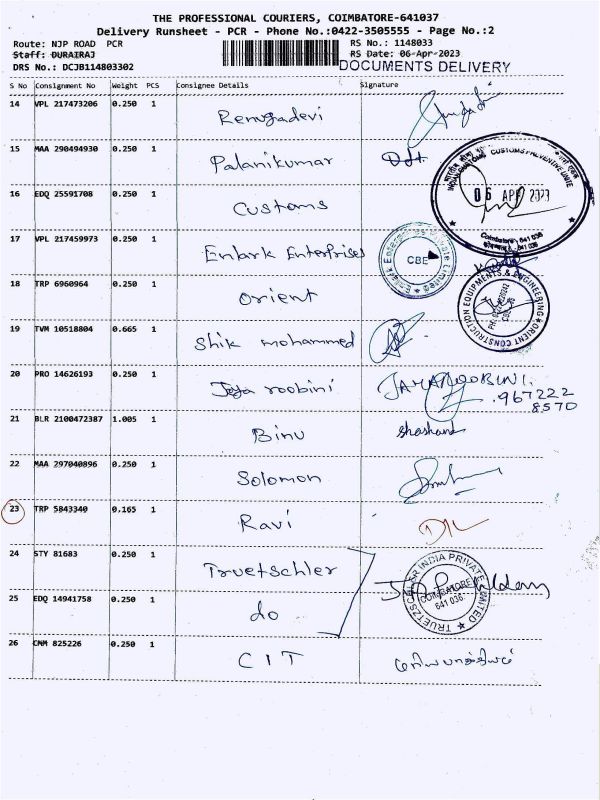 THE PROFESSIONAL COURIERS, COIMBATORE-641037
Delivery Runsheet - PCR - Phone No.:0422-3505555 - Page No.:2
Route: NJP ROAD PCR RS No.: 1148033
Staff: DURAIRAJ RS Date: 06-Apr-2023
DRS No.: DCJB114803302 DOCUMENTS DELIVERY
S No Consignment No Weight PCS Consignee Details Signature
14 VPL 217473206 0.250 1 Renugadevi
15 MAA 290494930 0.250 1 Palanikumar
16 EDQ 25591708 0.250 1 Customs
INDIAN CUSTOMS CUSTOMS PREVENTIVE UNIT
06 APR 2023
Coimbatore 641 036
641 036
17 VPL 217459973 0.250 1 Enlark Enterprises
Enlark Enterprises Private Limited
CBE
18 TRP 6960964 0.250 1 Orient
ORIENT CONSTRUCTION EQUIPMENTS & ENGINEERING
19 TVM 10518804 0.665 1 Shik mohammed
20 PRO 14626193 0.250 1 Jeya roobini JAYAROOBINI.
.967222
8570
21 BLR 2100472387 1.005 1 Binu Shashank
22 MAA 297040896 0.250 1 Solomon
23 TRP 5843340 0.165 1 Ravi
24 STY 81683 0.250 1 Truetschler
TRUETZSCHLER INDIA PRIVATE LIMITED
COIMBATORE
641 036
25 EDQ 14941758 0.250 1 do
26 CNM 825226 0.250 1 CIT